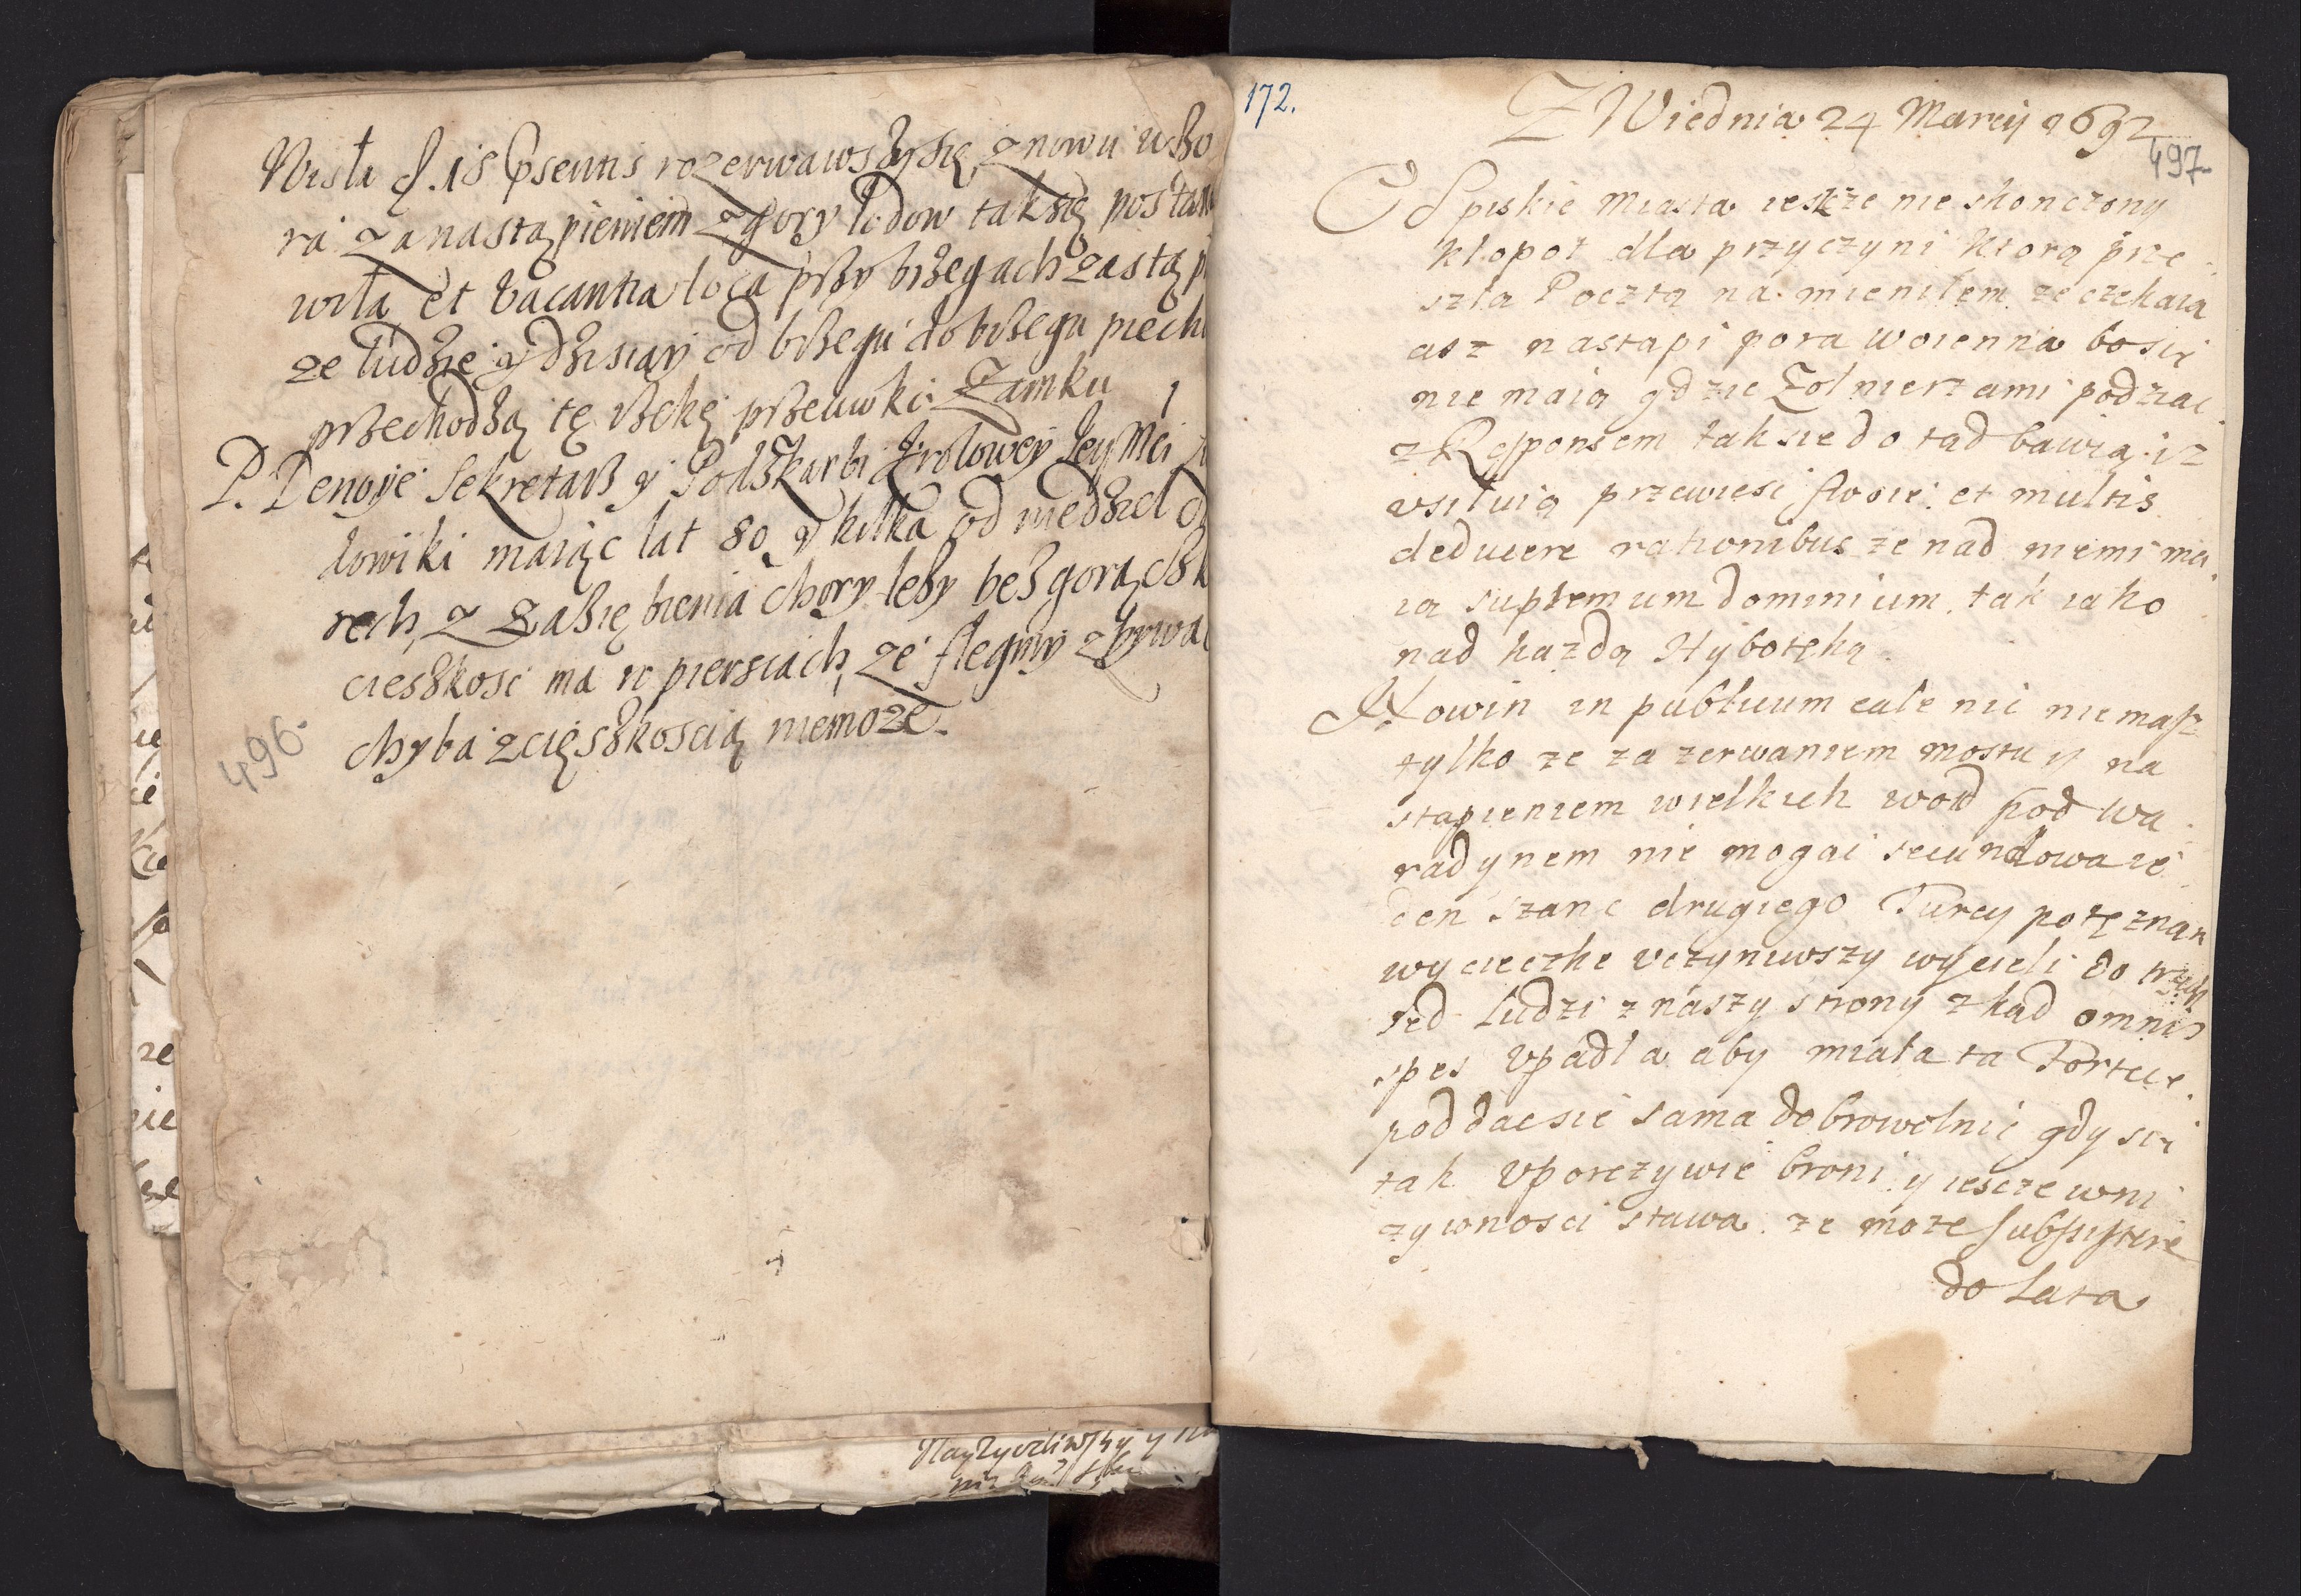 Wisła d. 18 Psentis rozerwawszy się, znowu wczo
ra za nastąpieniem zgory lodow tak się postan
wiła et vacantia loca przy brzegach zastąpi
ze ludzie y dzisiay od brzegu do brzegu piechi
przechodzą tę rzekę przeciwko Zamku
P. Denoye Sekretarz y Podskarbi Krolowey Jey Mci
łowiki maiąc lat 80 y kilka od niedziel
rech, z Zaziębienia chory lezy bez gorączk
cieszkosc ma w piersiach, ze flegmy zbywac
chyba zcięszkoscią niemoze.
496.
Nayzyczliwszy y
172.
Z Wiednia 24 Marcij 1692
497.
O Spiskie Miasta ieszcze nie skonczony
kłopot dla przyczyni ktorą prze
szła Pocztą na mieniłem ze czekaią
asz nastapi pora woienna bo się
nie maią gdzie Zołnierzami podziac
z Responsem tak sie do tad bawią iz
vsiłuią przewiesc swoie et multis
deducere rationibus ze nad niemi ma
ia supremum dominium tak iako
nad kazdą Hyboteką
Nowin in publicum cale nic nie masz
tylko ze za zerwaniem mostu y na
stapieniem wielkich wod pod Wa
radynem nie mogąc secundowac ie
den szanc drugiego Turcy potęzną
wycieczke vczyniwszy wycieli do trzech
set Ludzi z naszy strony z kad omnis
spes vpadła aby miała ta Fortece
poddac sie sama dobrowolnie gdy się
tak vporczywie broni y iescze w ni
zywnosci stawa ze moze subsistere
do Lata